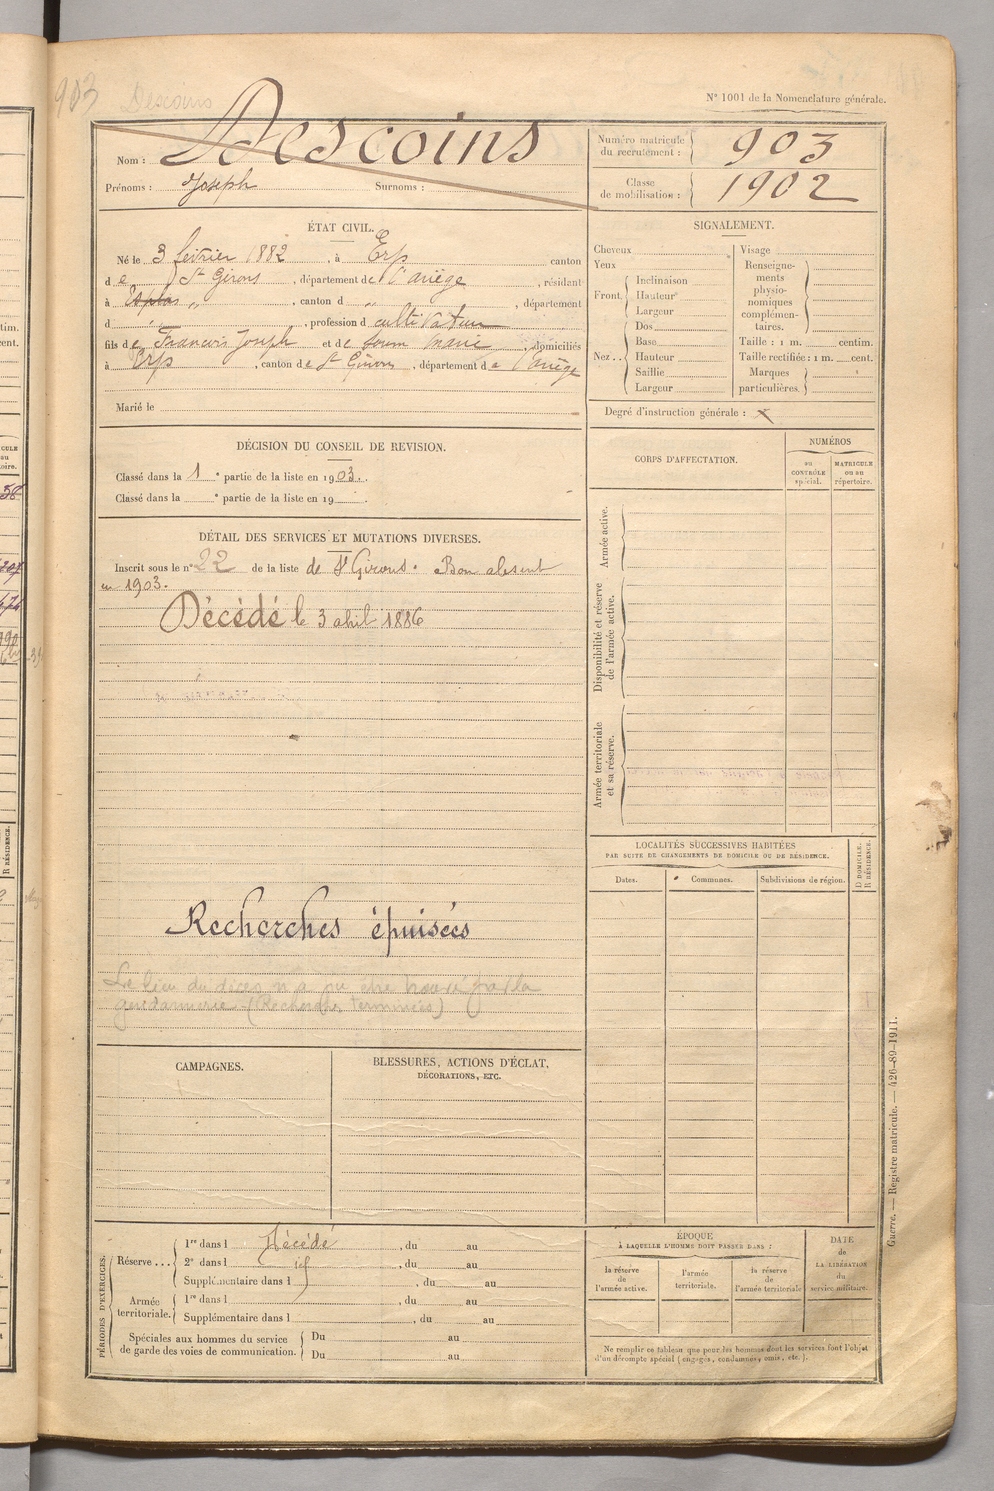 903 Descoins
N° 1001 de la Nomenclature générale.
Nom : Descoins
Prénoms : Joseph Surnoms :
Numéro matricule du recrutement : 903
Classe de mobilisation : 1902
ÉTAT CIVIL.
Né le 3 février 1882, à Erp canton
de St Girons, département de l'ariège, résidant
à Esplas " , canton d " , département
d " , profession d cultivateur
fils de François Joseph et de Soum Marie, domiciliés
à Erp, canton de St Girons, département de l'ariège
Marié le
SIGNALEMENT.
Cheveux
Yeux
Front. Inclinaison
Hauteur
Largeur
Nez .. Dos
Base
Hauteur
Saillie
Largeur
Visage
Renseignements physionomiques complémentaires.
Taille : 1 m. centim.
Taille rectifiée : 1 m. cent.
Marques particulières
Degré d'instruction générale : x
DÉCISION DU CONSEIL DE REVISION.
Classé dans la 1 e partie de la liste en 1903.
Classé dans la e partie de la liste en 19 .
DÉTAIL DES SERVICES ET MUTATIONS DIVERSES.
Inscrit sous le n° 22 de la liste de St Girons. Bon absent
en 1903.
Décédé le 3 abril 1886
Recherches épuisées
Le lieu du décès n'a pu être trouvé par la
gendarmerie (Recherches terminées)
CORPS D'AFFECTATION.
NUMÉROS
au CONTRÔLE spécial.
MATRICULE ou au répertoire.
Armée active.
Disponibilité et réserve de l'armée active.
Armée territoriale et sa réserve.
LOCALITÉS SUCCESSIVES HABITÉES
PAR SUITE DE CHANGEMENTS DE DOMICILE OU DE RÉSIDENCE.
Dates.
Communes.
Subdivisions de région.
D DOMICILE.
R RÉSIDENCE.
CAMPAGNES.
BLESSURES, ACTIONS D'ÉCLAT,
DÉCORATIONS, ETC.
PÉRIODES D'EXERCICES.
Réserve ... 1re dans l Décédé , du au
2e dans l , du au
Supplémentaire dans l , du au
Armée territoriale. 1re dans l , du au
Supplémentaire dans l , du au
Spéciales aux hommes du service
de garde des voies de communication. Du au
Du au
ÉPOQUE
À LAQUELLE L'HOMME DOIT PASSER DANS :
la réserve de l'armée active.
l'armée territoriale.
la réserve de l'armée territoriale
DATE de LA LIBÉRATION du service militaire.
Ne remplir ce tableau que pour les hommes dont les services font l'objet
d'un décompte spécial (engagés, condamnés, omis, etc.).
Guerre. — Registre matricule. — 426-89-1911.